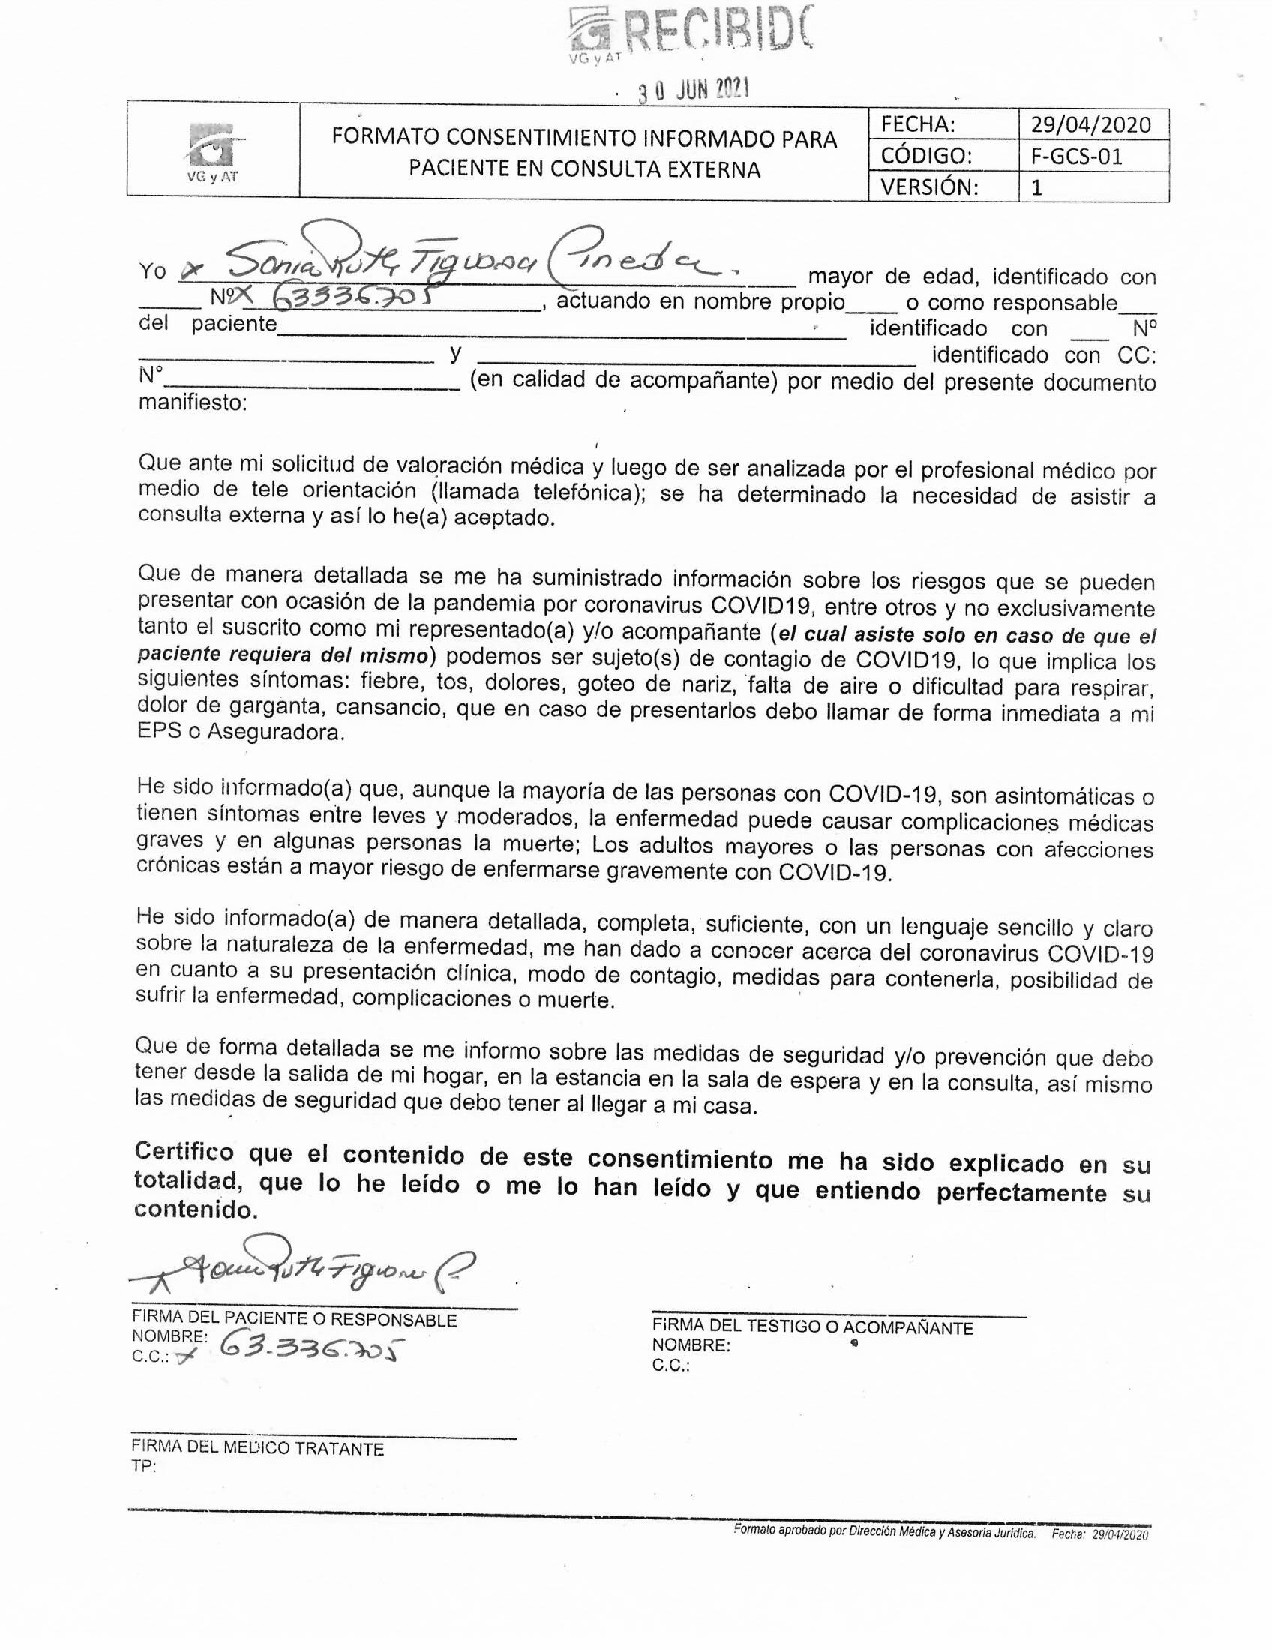 RECIBIDO
VG y AT
30 JUN 2021
VG y AT
FORMATO CONSENTIMIENTO INFORMADO PARA
PACIENTE EN CONSULTA EXTERNA
FECHA: 29/04/2020
CÓDIGO: F-GCS-01
VERSIÓN: 1
Yo x Sonia Ruth Figueroa Pineda. mayor de edad, identificado con
____ Nºx 63336.705, actuando en nombre propio____ o como responsable___
del paciente____ identificado con ___ Nº
____ y ____ identificado con CC:
N°____ (en calidad de acompañante) por medio del presente documento
manifiesto:
Que ante mi solicitud de valoración médica y luego de ser analizada por el profesional médico por
medio de tele orientación (llamada telefónica); se ha determinado la necesidad de asistir a
consulta externa y así lo he(a) aceptado.
Que de manera detallada se me ha suministrado información sobre los riesgos que se pueden
presentar con ocasión de la pandemia por coronavirus COVID19, entre otros y no exclusivamente
tanto el suscrito como mi representado(a) y/o acompañante (el cual asiste solo en caso de que el
paciente requiera del mismo) podemos ser sujeto(s) de contagio de COVID19, lo que implica los
siguientes síntomas: fiebre, tos, dolores, goteo de nariz, falta de aire o dificultad para respirar,
dolor de garganta, cansancio, que en caso de presentarlos debo llamar de forma inmediata a mi
EPS o Aseguradora.
He sido informado(a) que, aunque la mayoría de las personas con COVID-19, son asintomáticas o
tienen síntomas entre leves y moderados, la enfermedad puede causar complicaciones médicas
graves y en algunas personas la muerte; Los adultos mayores o las personas con afecciones
crónicas están a mayor riesgo de enfermarse gravemente con COVID-19.
He sido informado(a) de manera detallada, completa, suficiente, con un lenguaje sencillo y claro
sobre la naturaleza de la enfermedad, me han dado a conocer acerca del coronavirus COVID-19
en cuanto a su presentación clínica, modo de contagio, medidas para contenerla, posibilidad de
sufrir la enfermedad, complicaciones o muerte.
Que de forma detallada se me informo sobre las medidas de seguridad y/o prevención que debo
tener desde la salida de mi hogar, en la estancia en la sala de espera y en la consulta, así mismo
las medidas de seguridad que debo tener al llegar a mi casa.
Certifico que el contenido de este consentimiento me ha sido explicado en su
totalidad, que lo he leído o me lo han leído y que entiendo perfectamente su
contenido.
x Sonia Ruth Figueroa P
FIRMA DEL PACIENTE O RESPONSABLE
NOMBRE:
C.C.: x 63.336.705
FIRMA DEL TESTIGO O ACOMPAÑANTE
NOMBRE:
C.C.:
FIRMA DEL MEDICO TRATANTE
TP:
Formato aprobado por Dirección Médica y Asesoria Juridica. Fecha: 29/04/2020